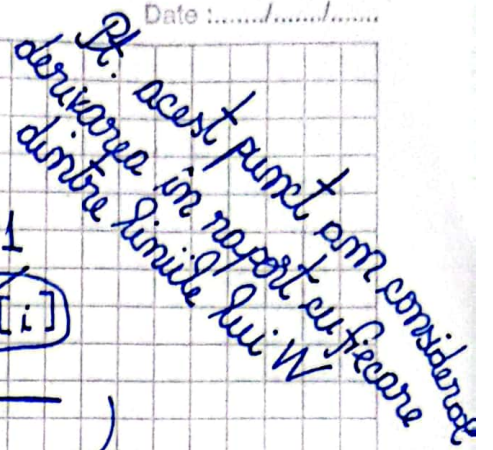 Date :......./......./.......
Pt. acest punct am considerat
derivarea în raport cu fiecare
dintre liniile lui W
1
[i]
)